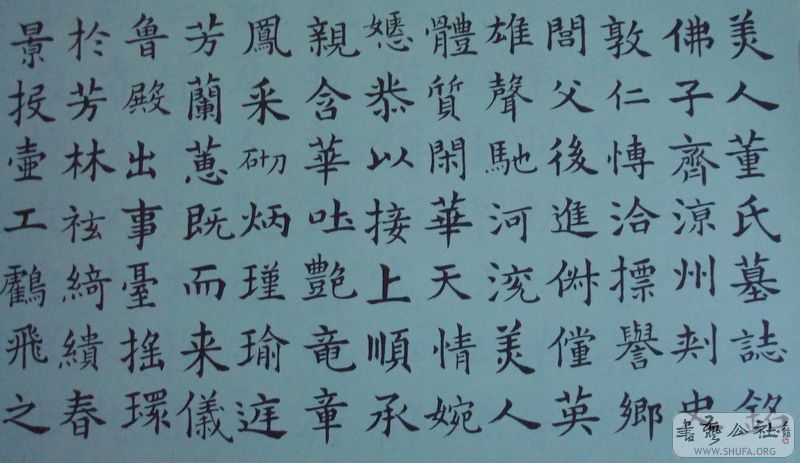 美人董氏墓誌銘
佛子齊涼州刺史
敦仁愽洽摽譽鄉
閭父後進俶儻英
雄聲馳河渷美人
體質閑華天情婉
嫕恭以接上順承
親含華吐豔竜章
鳳采砌炳瑾瑜庭
芳蘭蕙既而来儀
魯殿出事臺搖環
於芳林袨綺繢春
景投壺工鸖飛之
書藝公社
WWW.SHUFA.ORG